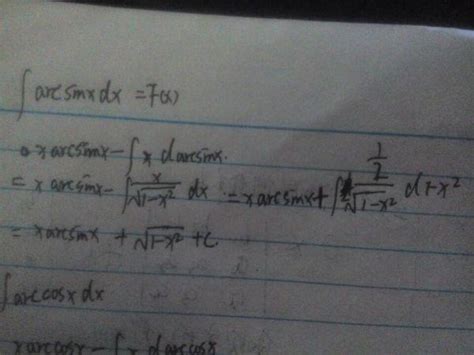 ∫ arcsinx dx = F(x)
x arcsinx - ∫ x d arcsinx.
= x arcsinx - ∫ x/√(1-x²) dx = x arcsinx + ∫ (1/2)/√(1-x²) d 1-x²
= x arcsinx + √(1-x²) + C.
∫ arccosx dx
x arccosx - ∫ x d arccosx